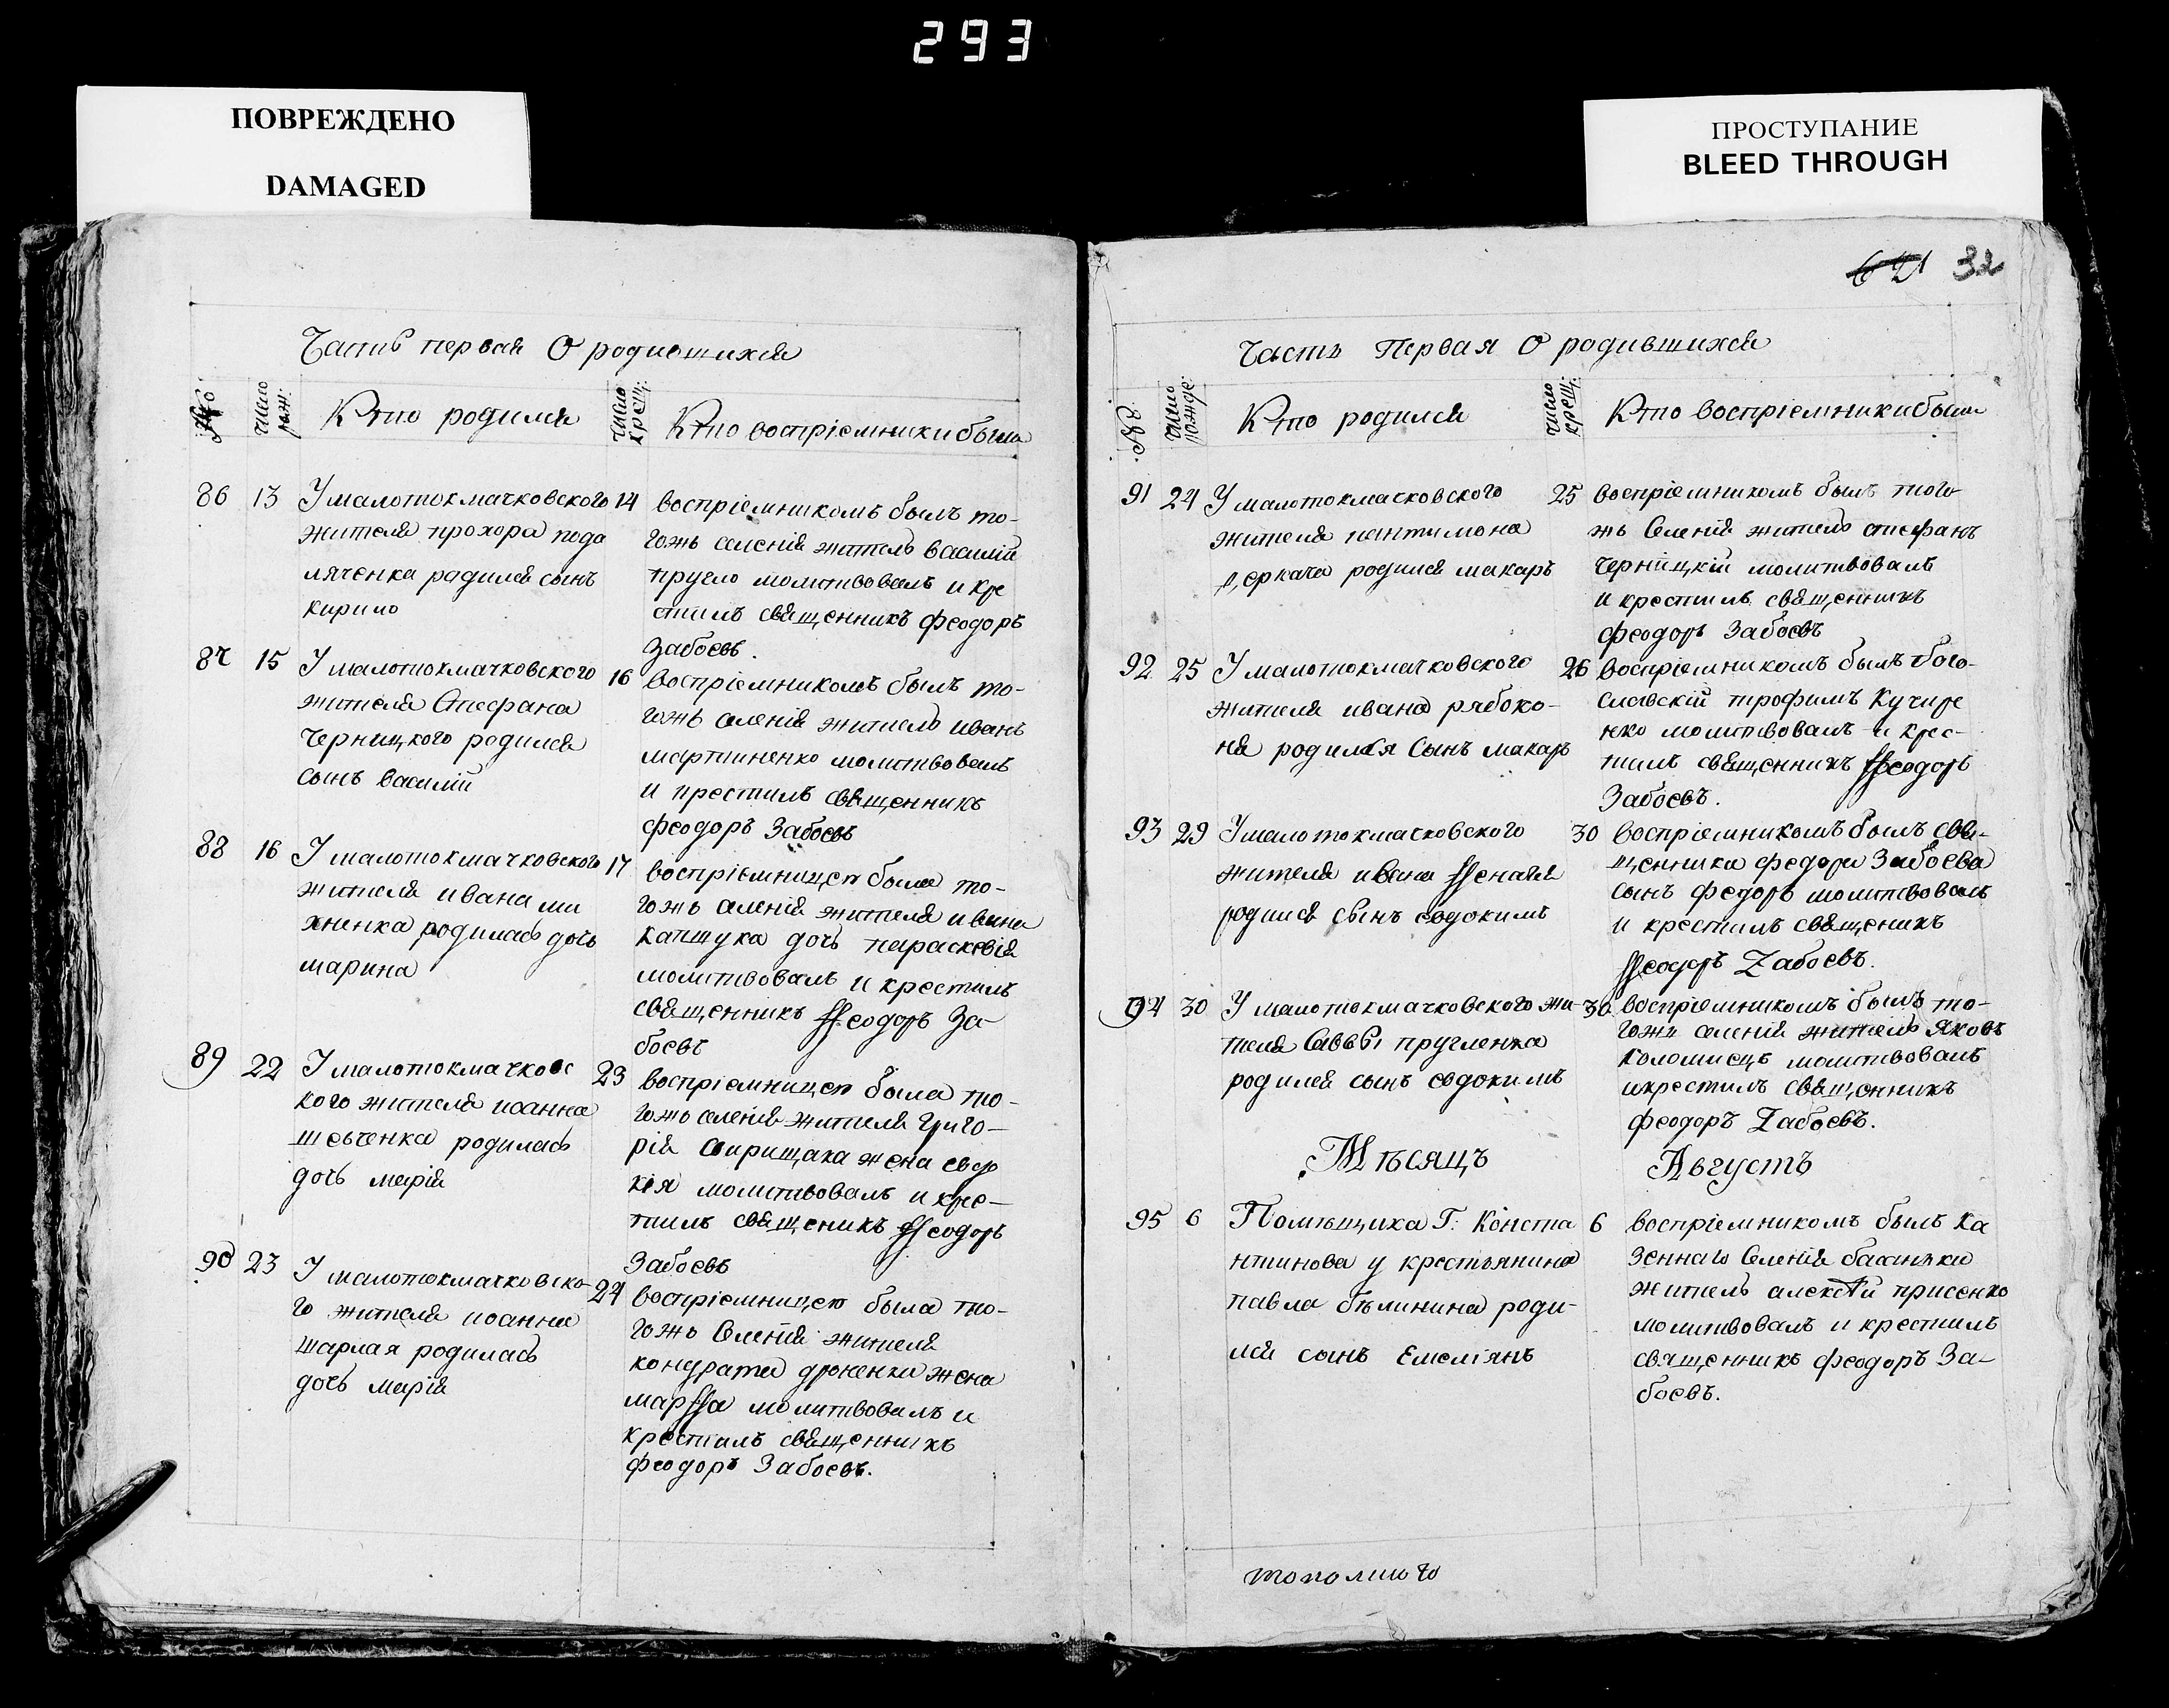 293
ПОВРЕЖДЕНО
DAMAGED
ПРОСТУПАНИЕ
BLEED THROUGH
Часть первая О родившихся
№
число рож:
Кто родился
число крещ:
Кто воспріемники были
86 13 У малотокмачковского 14
жителя прохора пода
ляченка радился сынъ
кирило
воспріемникомъ былъ то-
гожъ селенія житель василій
пругло молитвовалъ и кре
стилъ священникъ феодоръ
Забоевъ.
87 15 У малотокмачковского 16
жителя Стефана
Черницкого родился
сынъ василій
воспріемникомъ былъ то-
гожъ селенія житель иванъ
мартиненко молитвовалъ
и крестилъ священникъ
феодоръ Забоевъ
88 16 У малотокмачковского 17
жителя ивана ми
хненка родилась дочь
марина
воспріемницею была то-
гожъ селенія жителя ивана
капщука дочь параскевія
молитвовалъ и крестилъ
священникъ Ѳеодоръ За-
боевъ
89 22 У малотокмачковс 23
кого жителя иоанна
шевченка родилась
дочь марія
воспріемницею была то-
гожъ селенія жителя Григо-
рія Свирищака жена евдо
кія молитвовалъ и кре-
тилъ священикъ Ѳеодоръ
Забоевъ
90 23 У малотокмачковско- 24
го жителя иоанна
шарлая родилась
дочь марія
воспріемницею была то-
гожъ Селенія жителя
кондрата дроненка жена
марѲа молитвовалъ и
крестилъ священникъ
феодоръ Забоевъ.
621 32
Часть Первая О родившихся
№
число рожде:
Кто родился
число крещ:
Кто воспріемники были
91 24 У малотокмачковского 25
жителя пантимона
деркача родился макаръ
воспріемникомъ былъ того
жъ Селенія житель стефанъ
Черницкій молитвовалъ
и крестилъ священникъ
феодоръ Забоевъ
92 25 У малотокмачковского 26
жителя ивана рябоко-
ня родился Сынъ макаръ
воспріемникомъ былъ бого-
славскій трофимъ Кучире
нко молитвовалъ и крес-
тилъ священникъ Ѳеодоръ
Забоевъ.
93 29 У малотокмачковского 30
жителя ивана Ѳеналя
родился сынъ евдокимъ
воспріемникомъ былъ свя-
щенника федора Забоева
сынъ федоръ молитвовалъ
и крестилъ священикъ
Ѳеодоръ Zабоевъ.
94 30 У малотокмачковского жи- 30
теля Саввы пругленка
родился сынъ евдокимъ
воспріемникомъ былъ то-
гожъ селенія житель Яковъ
Коломиецъ молитвовалъ
и крестилъ священникъ
феодоръ Zабоевъ.
Мѣсяцъ Августъ
95 6 Помѣщика Г: Конста 6
нтинова у крестьянина
павла бѣлинина роди-
лся сынъ Емеліянъ
воспріемникомъ былъ ка
зеннаго Селенія басанѣки
житель алексѣй присенко
молитвовалъ и крестилъ
священникъ феодоръ За-
боевъ.